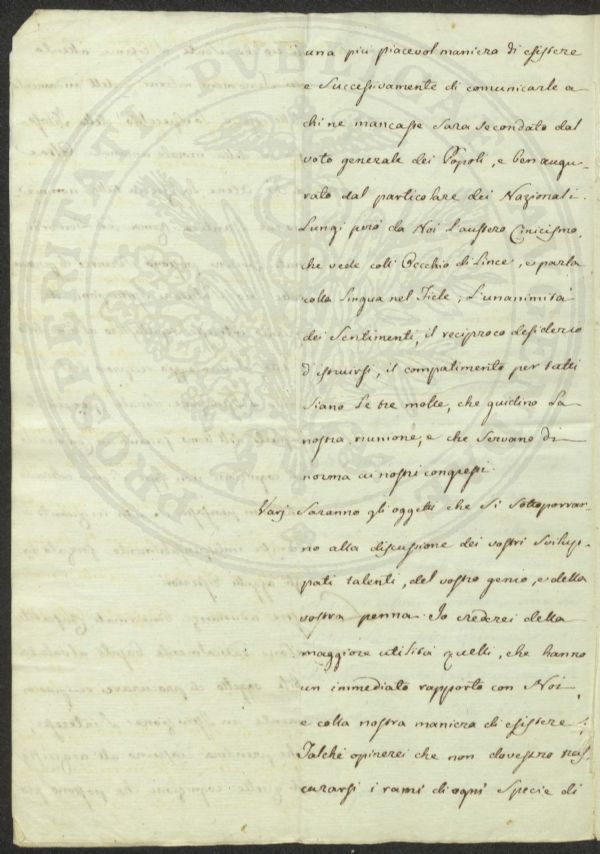 una più piacevol maniera di esistere
e successivamente di comunicarle a
chi ne mancasse sarà secondato dal
voto generale dei Popoli, e ben augu-
rato dal particolare dei Nazionali.
Lungi però da Noi l'austero Cinicismo,
che vede coll'Occhio di Lince, e parla
colla Lingua nel Fiele, L'unanimità
dei Sentimenti, il reciproco desiderio
d'istruirsi, il compatimento per tutti
siano le tre molle, che guidino la
nostra riunione, e che servano di
norma ai nostri congressi.
Varj saranno gli oggetti che si sottoporran-
no alla discussione dei vostri svilup-
pati talenti, del vostro genio, e della
vostra penna. Io crederei della
maggiore utilità quelli, che hanno
un immediato rapporto con Noi,
e colla nostra maniera di esistere;
Talché opinerei che non dovessero tras-
curarsi i rami di ogni specie di
PROSPERITATI PVBLICAE